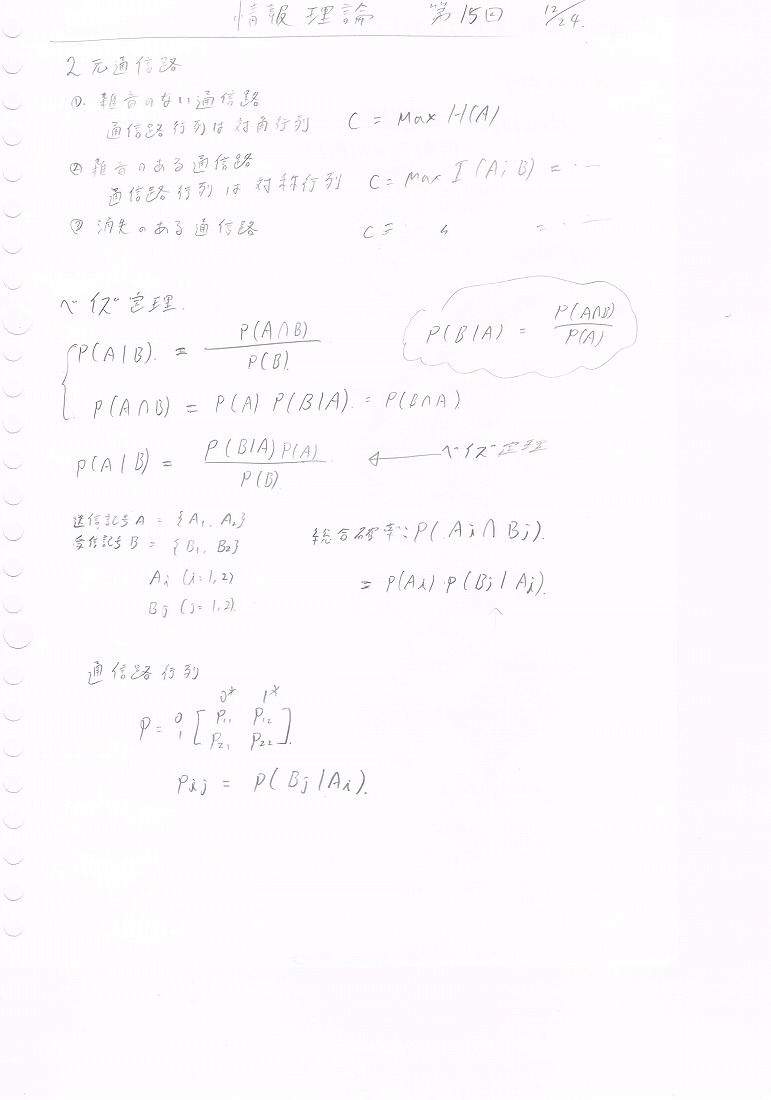 情報理論 第15回 12/24.
2元通信路
①. 雑音のない通信路
通信路行列は対角行列 C = Max H(A)
② 雑音のある通信路
通信路行列は対称行列 C = Max I(A; B) = ・―
③ 消失のある通信路 C = 〃 = ・―
ベイズ定理.
P(A|B). = P(A∩B) / P(B).
P(B|A) = P(A∩B) / P(A)
P(A∩B) = P(A) P(B|A). = P(B∩A)
P(A|B) = P(B|A)P(A) / P(B) ← ベイズ定理
送信記号A = {A₁, A₂}
受信記号B = {B₁, B₂}
Ai (i=1,2)
Bj (j=1,2).
総合確率: P(Ai∩Bj).
= P(Ai)・P(Bj|Ai).
通信路行列
0* 1*
P = 0 [ P₁₁ P₁₂
1 P₂₁ P₂₂ ].
Pij = P(Bj|Ai).